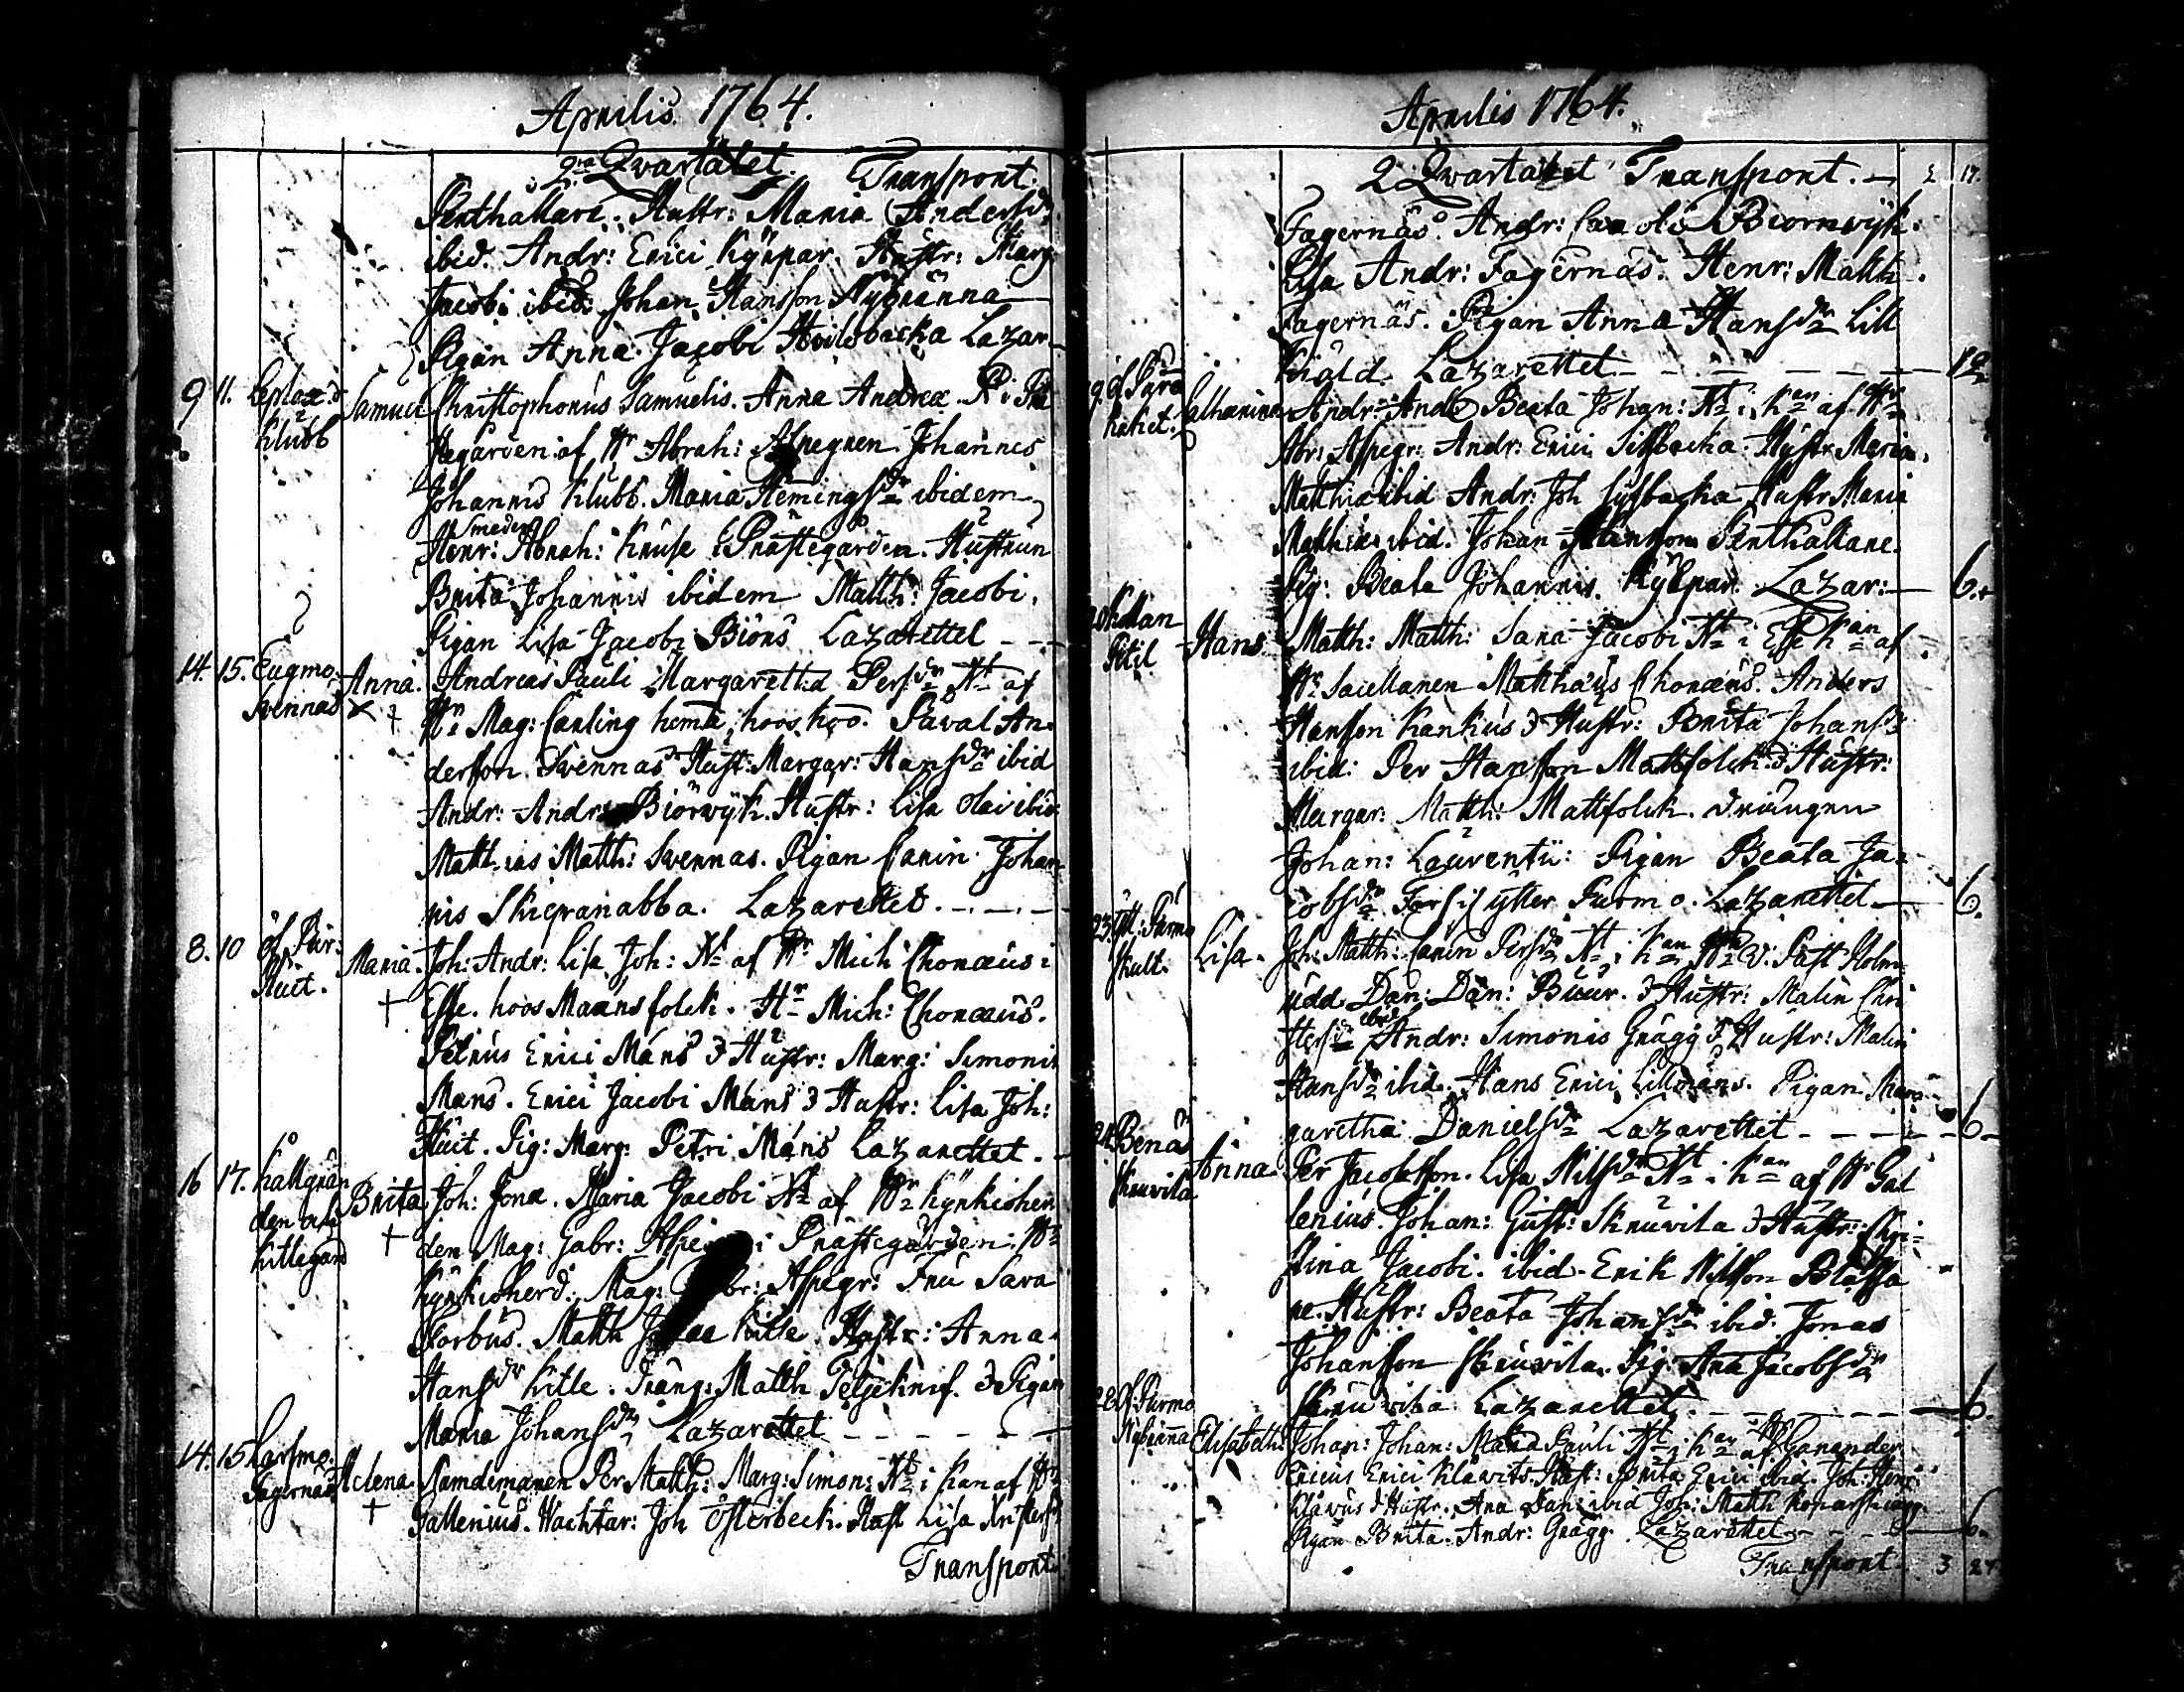 Aprilis. 1764.
2ra Qvartalet. Transport.
Penthallare. Hustr: Maria Andersdr
ibid. Andr: Erici Kyrpar. Hustr: Marg:
Jacobi ibid: Johan Hansson Nybränna
Pigan Anna Jacobi Hvilobacka Lazar
9 11. Eeplax
Klubb
Samuel
Christophorus Samuelis. Anna Andreæ. Nt i Prä
stegården af Hr Abrah: Aspegren Johannes
Johannis Klubb. Maria Hemingsdr ibidem
smeden
Henr: Abrah: Kruse i Prästegården. Hustrun
Brita Johannis ibidem Matth: Jacobi.
Pigan Lisa Jacobi Biörs Lazarettet
14. 15. Eugmo
Svennas
Anna.
†
Andreas Pauli Margaretha Persdr Nt af
Hr Mag: Carling hema hoos hoo. Påval An-
dersson Svennas Hust: Margar: Hansdr ibid
Andr: Andr: Biörwÿk. Hustr: Lisa Olai ibid
Matthias Matth: Svennas. Pigan Carin Johan
nis Skiepranabba. Lazarettet.
8. 10 öf. Pur:
Huit.
Maria.
†
Joh: Andr: Lisa Joh: Nt af Hr Mich Chonæus i
Esse. hoos Maansfolck. Hr Mich: Chonæus.
Petrus Erici Måns & Hustr: Marg: Simonis
Måns. Erici Jacobi Måns & Hustr: Lisa Joh:
Huit. Pig: Marg: Petri Måns Lazarettet.
16 17. Kållgrän
den och
Kittegård
Brita
†
Joh: Jonæ. Maria Jacobi Nt af Hr Kyrkioher
den Mag: Gabr: i Prästegården. Hr
Kyrkioherd: Mag: Aspegr: Fru Sara
Forbus. Matth Kitte. Hustr: Anna
Hansdr Kitte. Dräng: Matth Teljeknif. & Pigan
Maria Johansdr Lazarettet
14. 15 Larsmo.
Fagernäs
Helena
†
Nämdemanen Per Matth: Marg: Simon: Nt i Kan af Hr
Gallenius. Wachtar: Joh Österbeck. Hust Lisa Kristersd
Transport:
Aprilis 1764.
2 Qvartalet Transport. 2 17.
Fagernäs. Andr: Caroli Biornwÿk.
Lisa Andr: Fagernäs. Henr: Matth
Fagernäs. Pigan Anna Hansdr Lill
Kiåld. Lazarettet
Catharina
Andr: Andr Beata Johan: Nt i Kan af Hr
Abr: Aspegr: Andr: Erici Sissbacka Hustr Maria
Matthiæ ibid Andr: Joh Hustr Maria
Matthiæ ibid. Johan Penthallare.
Pig: Beata Johannis. Kyrpar. Lazar: 6.
Hans
Matth: Matth: Sara Jacobi Nt i Esse Kan af
Hr Matthæus Chonæus. Anders
Hansson Kankus & Hustr: Brita Johansdr
ibid: Per Hansson Mattsfolck & Hustr:
Margar: Matth: Mattfolck. Drängen
Johan: Laurentii: Pigan Beata Ja-
cobsdr ytter Purmo. Lazarettet 6.
23. Ytt: Purmo
Lisa.
Joh: Matth: Carin Persdr Nt i Kan Hr V: Past Holm
udd Dan: Dan: Buur. & Hustr: Malin Chri
stersdr ibid Andr: Simonis Grägg & Hustr: Malin
Hansdr ibid. Hans Erici Lillmåns. Pigan Mar
garetha Danielsdr Lazarettet 6
24. Benäs
Skruvila
Anna
Per Jacobsson. Lisa Nilsdr Nt i Kan af Hr Gal
lenius. Johan: Gust: Skruvila & Hustr: Chri-
stina Jacobi. ibid. Erik Nilsson
Hustr: Beata Johansdr ibid. Jonas
Johansson Skruvila. Pig: Ana Jacobsdr
Skruvila Lazarettet. 6.
Öf: Purmo
Nybränna
Elisabeth.
Johan: Johan: Maria Pauli Nt i Kan af Hr Ganander
Ericus Erici Klåwits Hust: Brita Erici ibid. Joh: Henr:
Klåwus & Hustr. Ana Dan: ibid Joh: Matth
Pigan Brita Andr: Grägg. Lazarettet 6.
Transport 3 24